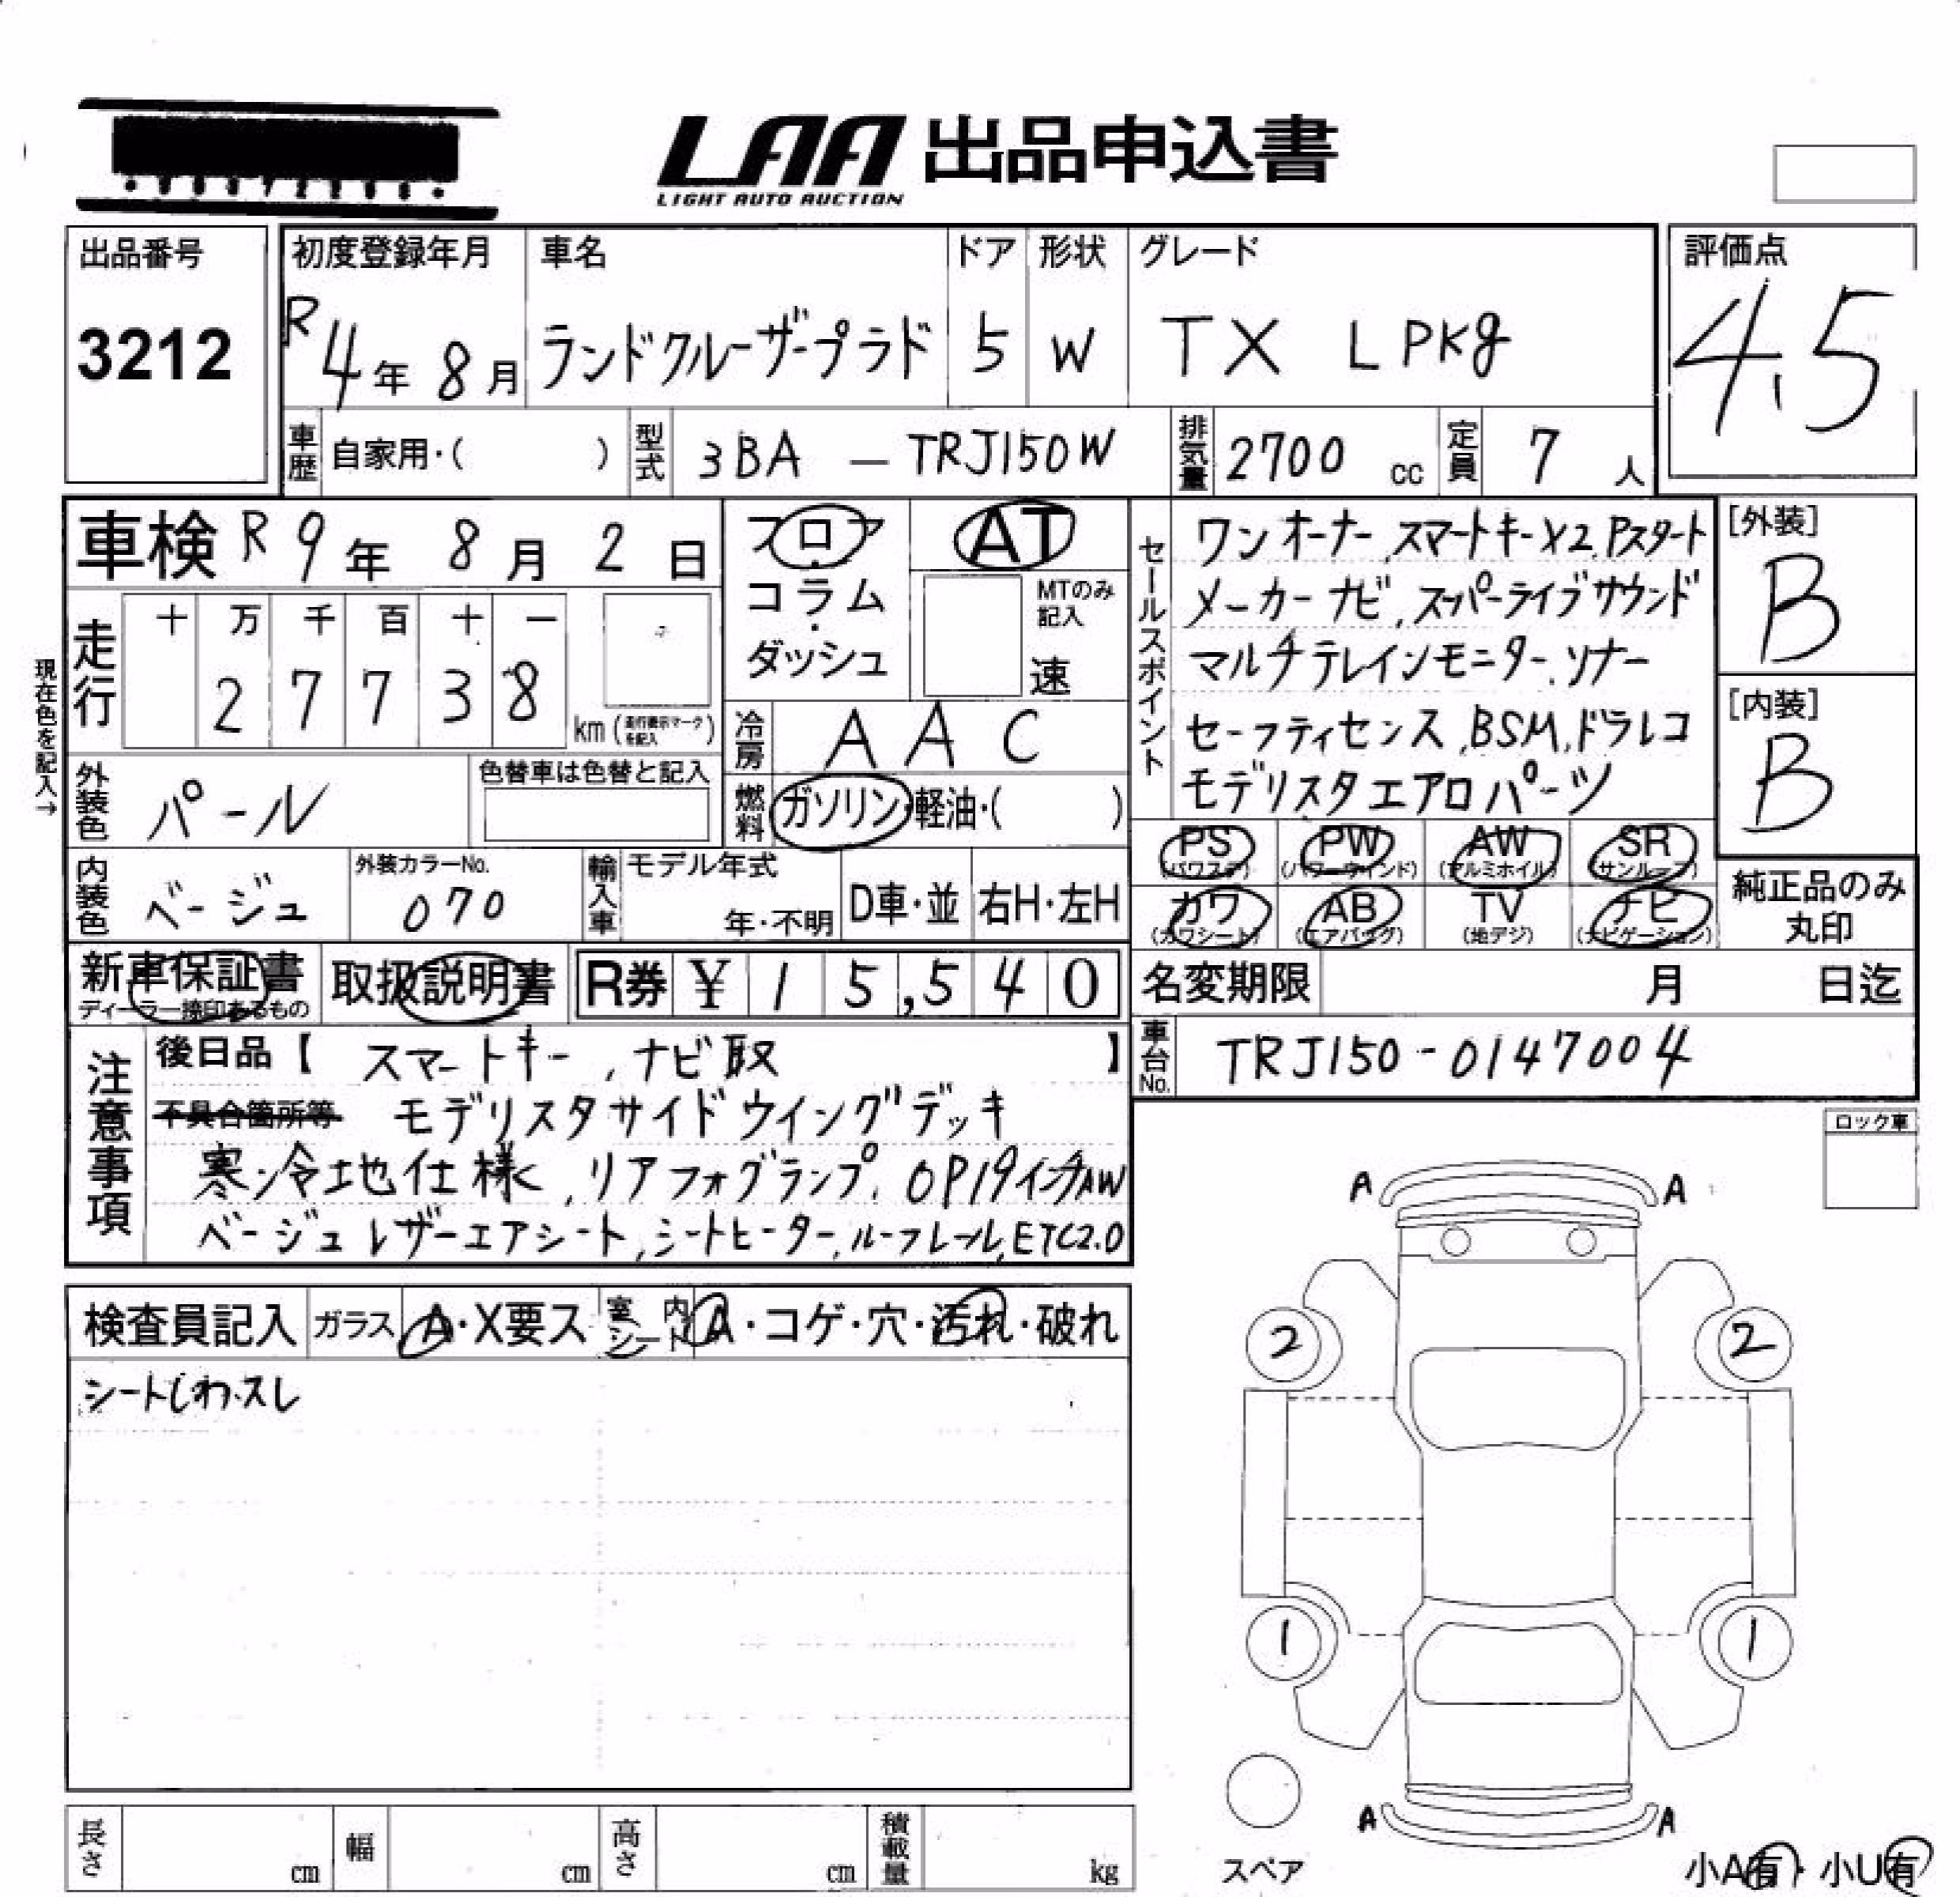 LAA 出品申込書
LIGHT AUTO AUCTION
出品番号
3212
初度登録年月
R4年8月
車名
ランドクルーザープラド
ドア
5
形状
W
グレード
TX LPKg
評価点
4.5
車歴 自家用・( )
型式 3BA — TRJ150W
排気量 2700 cc
定員 7 人
車検 R9年 8月 2日
フロア
コラム
ダッシュ
AT
MTのみ記入
速
セールスポイント
ワンオーナー、スマートキーX2、Pスタート
メーカーナビ、スーパーライブサウンド
マルチテレインモニター、ソナー
セーフティセンス、BSM、ドラレコ
モデリスタエアロパーツ
[外装]
B
[内装]
B
現在色を記入→
走行
十 万 千 百 十 一
2 7 7 3 8
km (走行表示マークを記入)
冷房 AAC
燃料 ガソリン・軽油・( )
外装色 パール
色替車は色替と記入
内装色 ベージュ
外装カラーNo.
070
輸入車 モデル年式
年・不明
D車・並
右H・左H
PS (パワステ)
PW (パワーウィンド)
AW (アルミホイル)
SR (サンルーフ)
カワ (カワシート)
AB (エアバッグ)
TV (地デジ)
ナビ (ナビゲーション)
純正品のみ
丸印
新車保証書
ディーラー捺印あるもの
取扱説明書
R券 ¥ 15,540
名変期限 月 日迄
車台No. TRJ150-0147004
注意事項
後日品【 スマートキー、ナビ取 】
不具合箇所等 モデリスタサイドウイングデッキ
寒冷地仕様、リアフォグランプ、OP19インチAW
ベージュレザーエアシート、シートヒーター、ルーフレール、ETC2.0
ロック車
検査員記入
ガラス A・X要ス
室内シート A・コゲ・穴・汚れ・破れ
シートしわ・スレ
A A
2 2
1 1
A A
スペア
小A有・小U有
長さ cm
幅 cm
高さ cm
積載量 kg